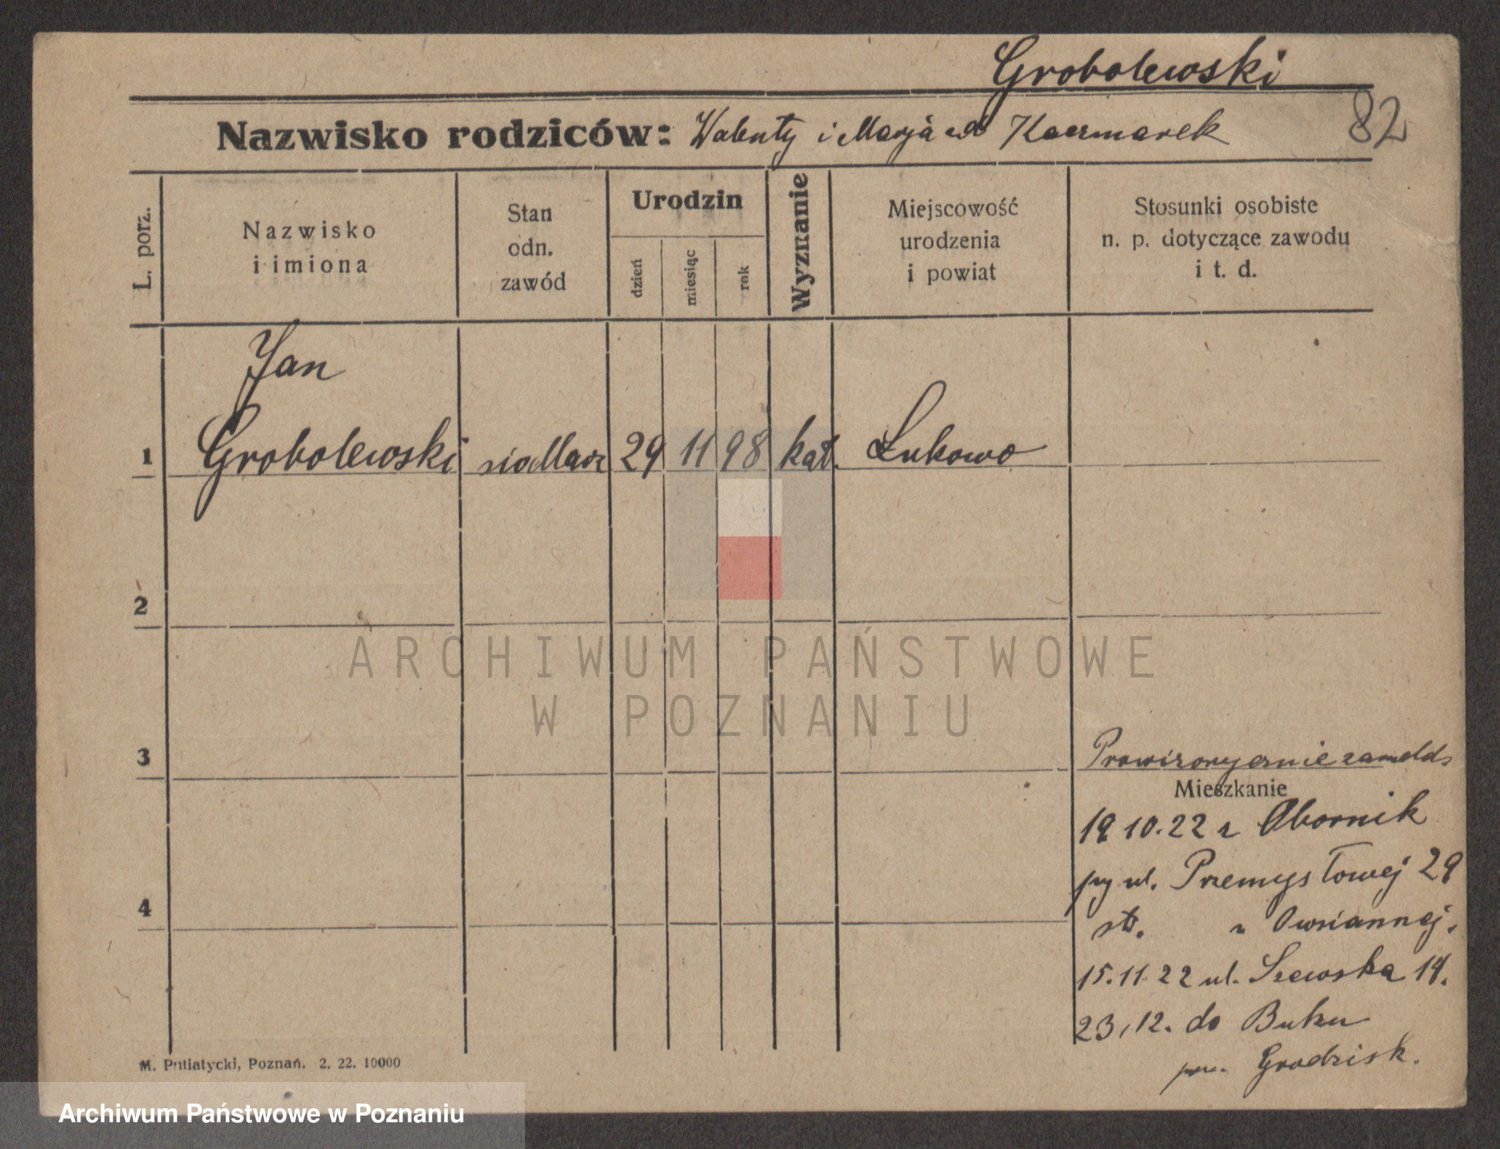 Grobolewski
82
Nazwisko rodziców: Walenty i Marja Kaczmarek
L. porz.
Nazwisko
i imiona
Stan
odn.
zawód
Urodzin
dzień
miesiąc
rok
Wyznanie
Miejscowość
urodzenia
i powiat
Stosunki osobiste
n. p. dotyczące zawodu
i t. d.
Jan
1 Grobolewski siodlarz 29 11 98 kat. Łukowo
2
ARCHIWUM PAŃSTWOWE
W POZNANIU
3
Prowizorycznie zameld.
Mieszkanie
19 10.22 z Obornik
4
przy ul. Przemysłowej 29
str. u Owsiannej.
15.11.22 ul. Szewska 14.
23.12. do Buku
pow. Grodzisk.
M. Putiatycki, Poznań. 2. 22. 10000
Archiwum Państwowe w Poznaniu